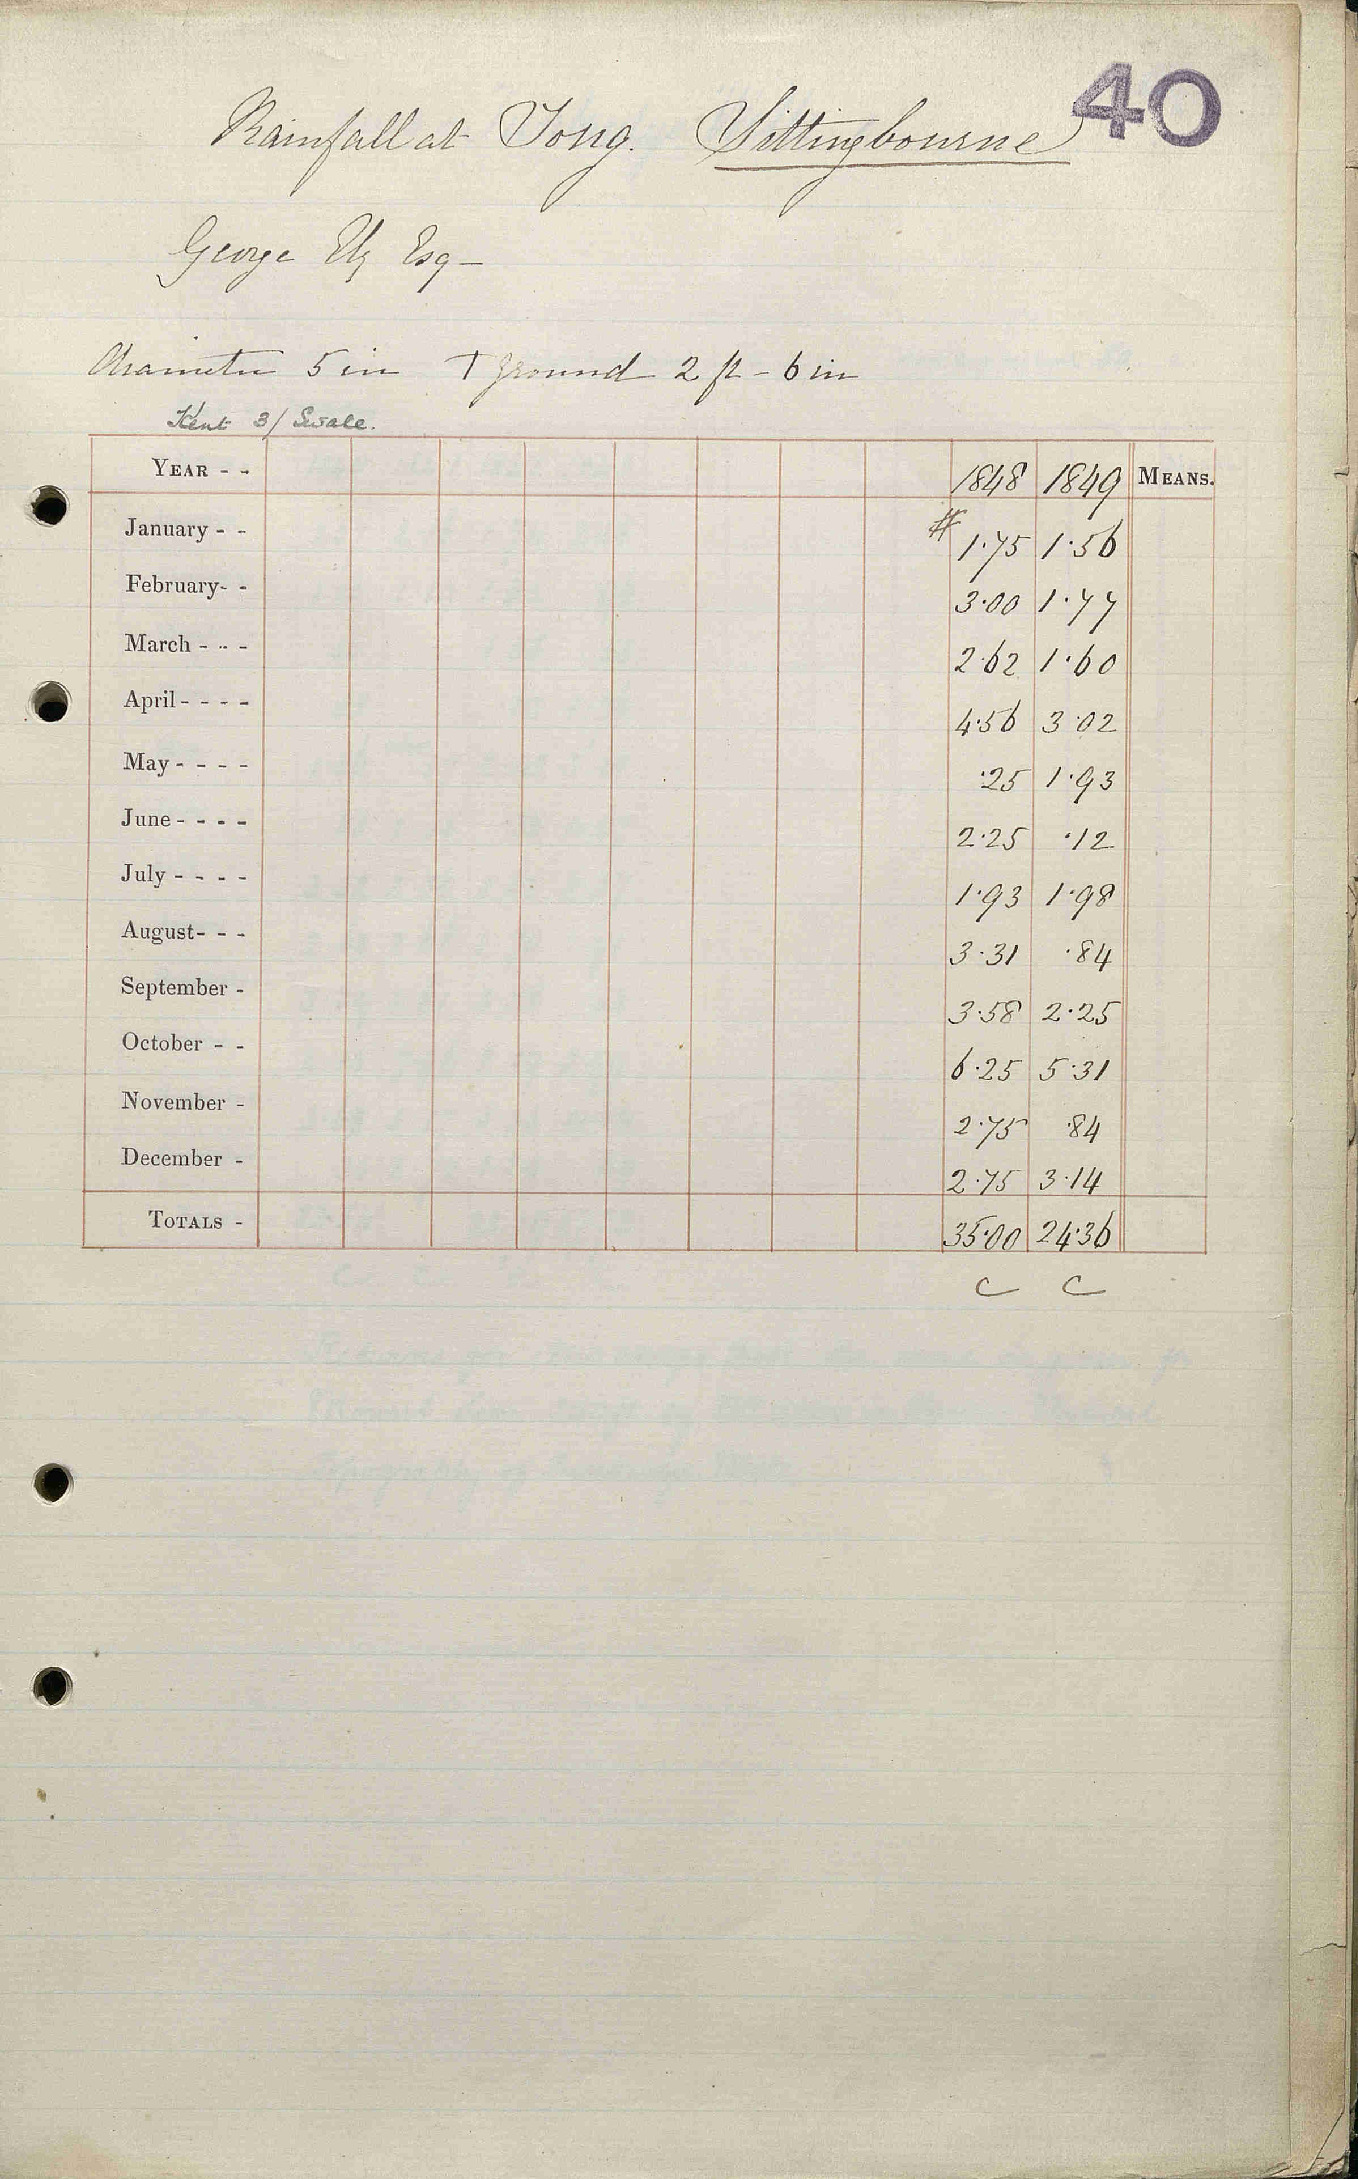 40
Rainfall at Tong. Sittingbourne
George Ely Esq -
Diameter 5 in T ground 2 ft - 6 in
Kent 3/ Swale.
YEAR - - 1848 1849 MEANS.
January - - # 1.75 1.56
February- - 3.00 1.77
March - - - 2.62 1.60
April - - - - 4.56 3.02
May - - - - .25 1.93
June - - - - 2.25 .12
July - - - - 1.93 1.98
August- - - 3.31 .84
September - 3.58 2.25
October - - 6.25 5.31
November - 2.75 .84
December - 2.75 3.14
TOTALS - 35.00 24.36
C C